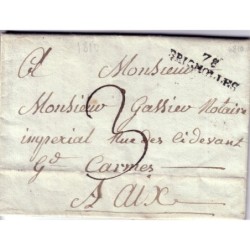 1812
78
BRIGNOLLES
A Monsieur
Monsieur Gassier Notaire
imperial Rue des ci devant
Gd Carmes
A Aix
3